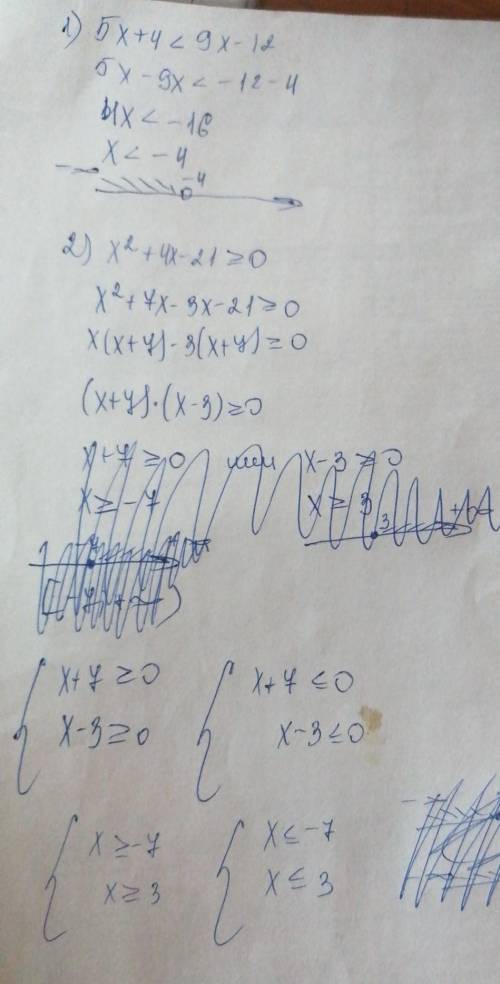 1) 5x+4 < 9x-12
5x - 9x < -12 - 4
4x < -16
x < -4
-4
2) x² + 4x - 21 ≥ 0
x² + 7x - 3x - 21 ≥ 0
x(x+7) - 3(x+7) ≥ 0
(x+7)·(x-3) ≥ 0
x+7 ≥ 0 или x-3 ≥ 0
x ≥ -7 x ≥ 3
3
{ x+7 ≥ 0 { x+7 ≤ 0
x-3 ≥ 0 x-3 ≤ 0
{ x ≥ -7 { x ≤ -7
x ≥ 3 x ≤ 3